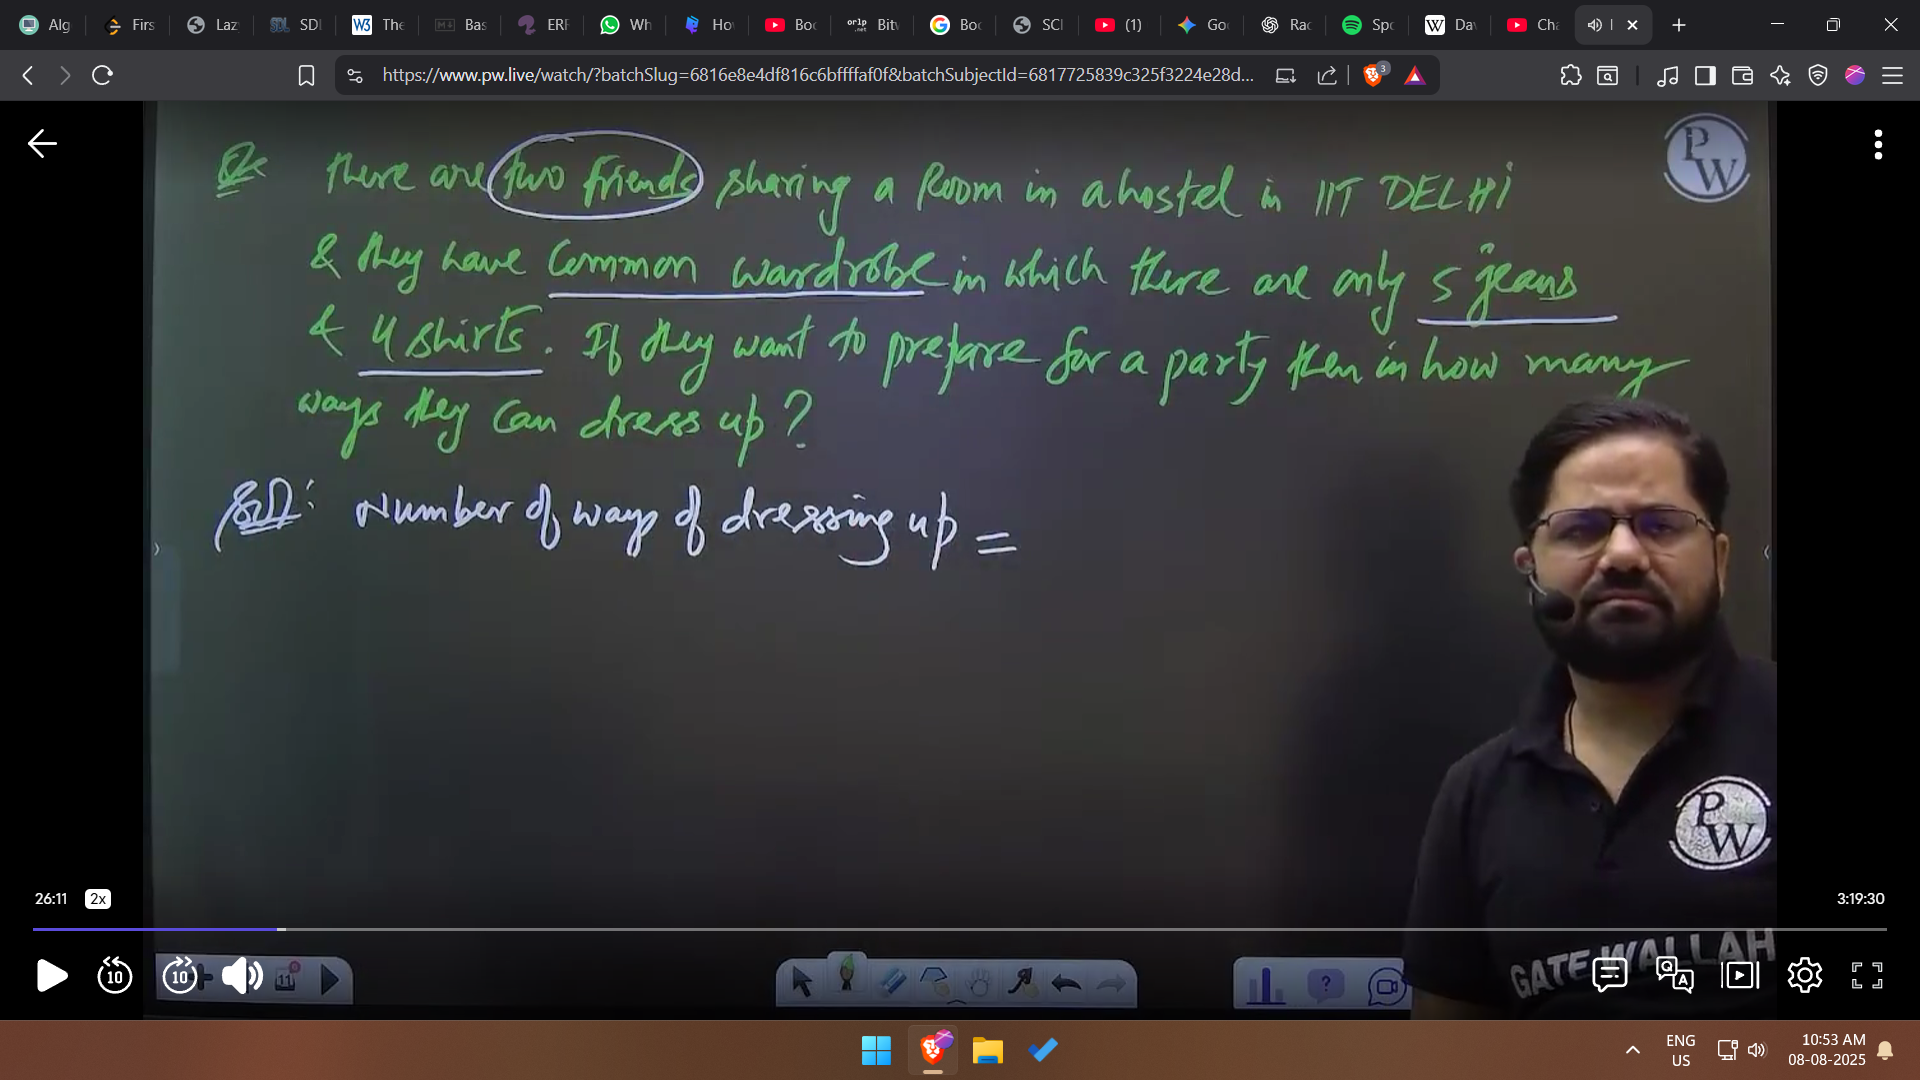 Alg
Firs
Laz
SDI
The
Bas
ERF
Wh
Hov
Boc
Bitv
Boc
SCI
(1)
Goc
Rac
Spc
Dav
Cha
https://www.pw.live/watch/?batchSlug=6816e8e4df816c6bffffaf0f&batchSubjectId=6817725839c325f3224e28d...
3
There are two friends sharing a Room in a hostel in IIT DELHI
& they have Common wardrobe in which there are only 5 jeans
& 4 shirts. If they want to prepare for a party then in how many
ways they can dress up?
Sol: Number of ways of dressing up =
PW
PW
GATE WALLAH
26:11 2x
3:19:30
10
10
11
ENG
US
10:53 AM
08-08-2025